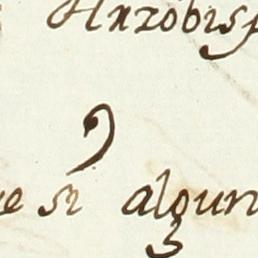 Arzobisp
e si algun